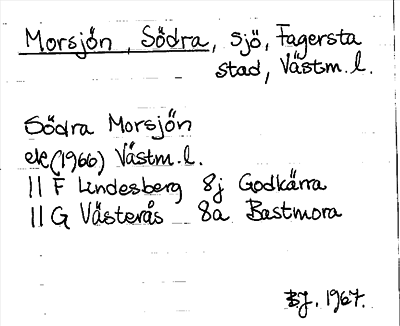 Morsjön, Södra, sjö, Fagersta
stad, Västm. l.
Södra Morsjön
ek (1966) Västm. l.
11 F Lindesberg 8j Godkärra
11 G Västerås 8a Bastmora
BJ. 1967.